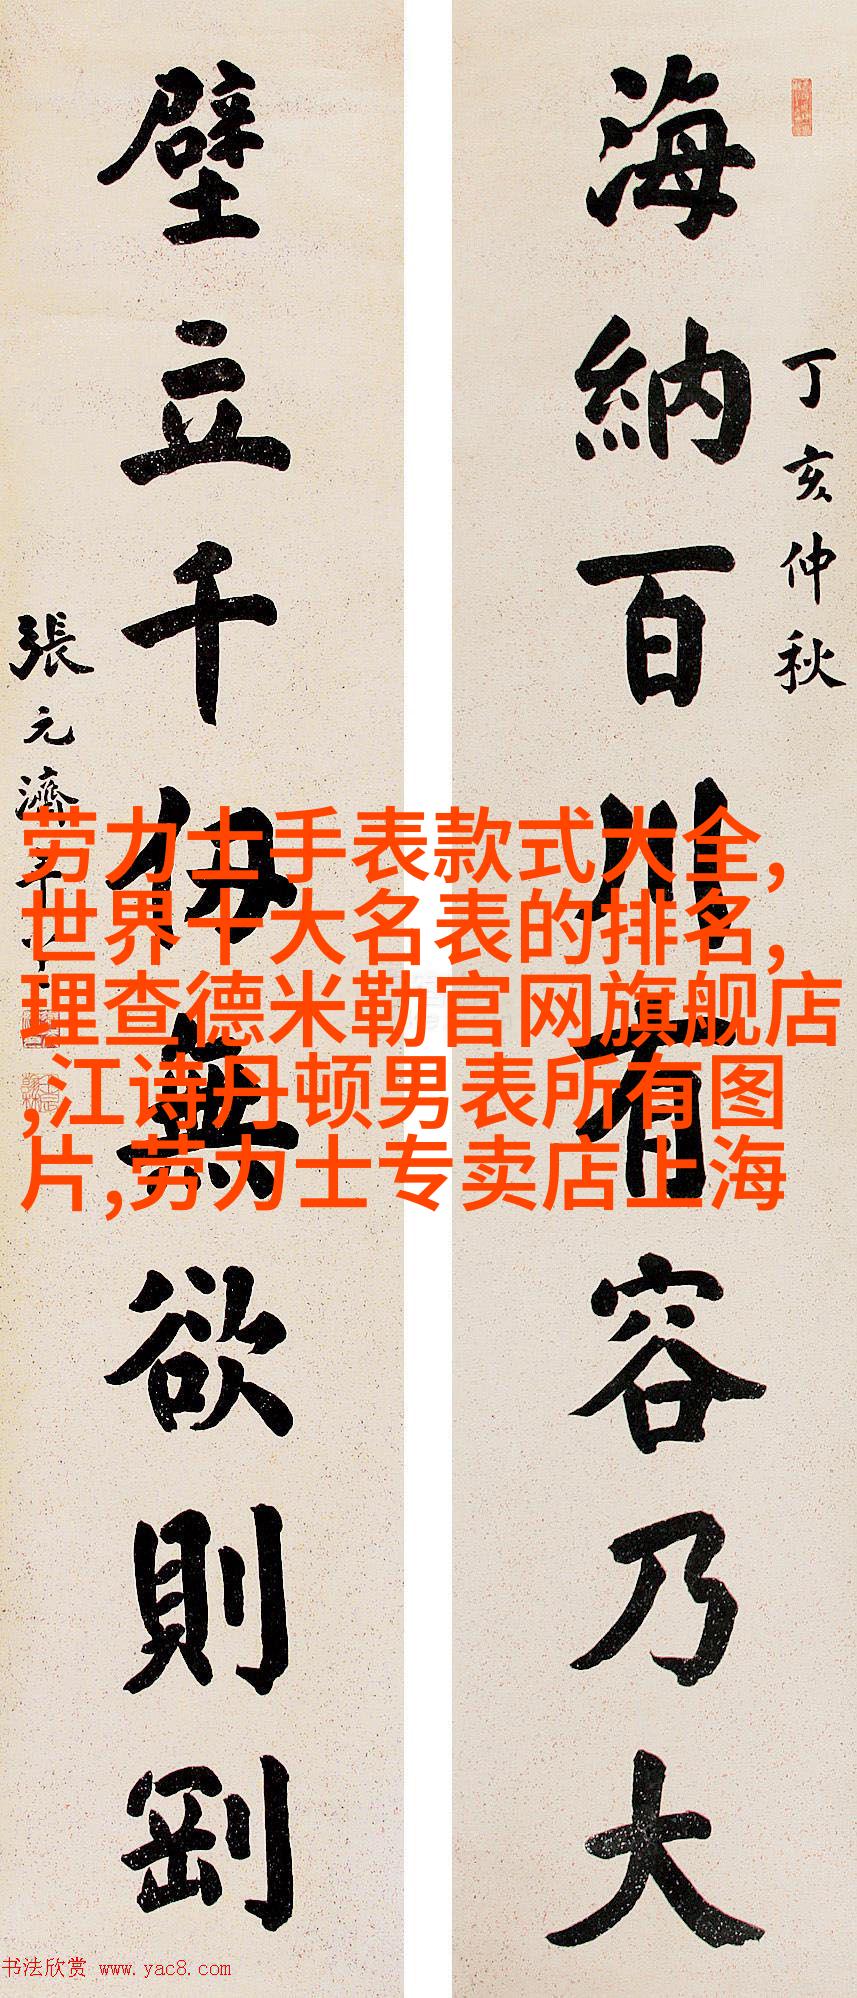 海納百川有容乃大
丁亥仲秋
壁立千仞無欲則剛
張元濟
劳力士手表款式大全,
世界十大名表的排名,
理查德米勒官网旗舰店
,江诗丹顿男表所有图
片,劳力士专卖店上海
书法欣赏 www.yac8.com